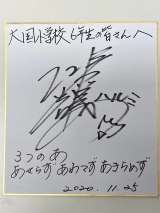 大国小学校6年生の皆さんへ
3つのあ
あせらず あわてず あきらめず
2020.11.25